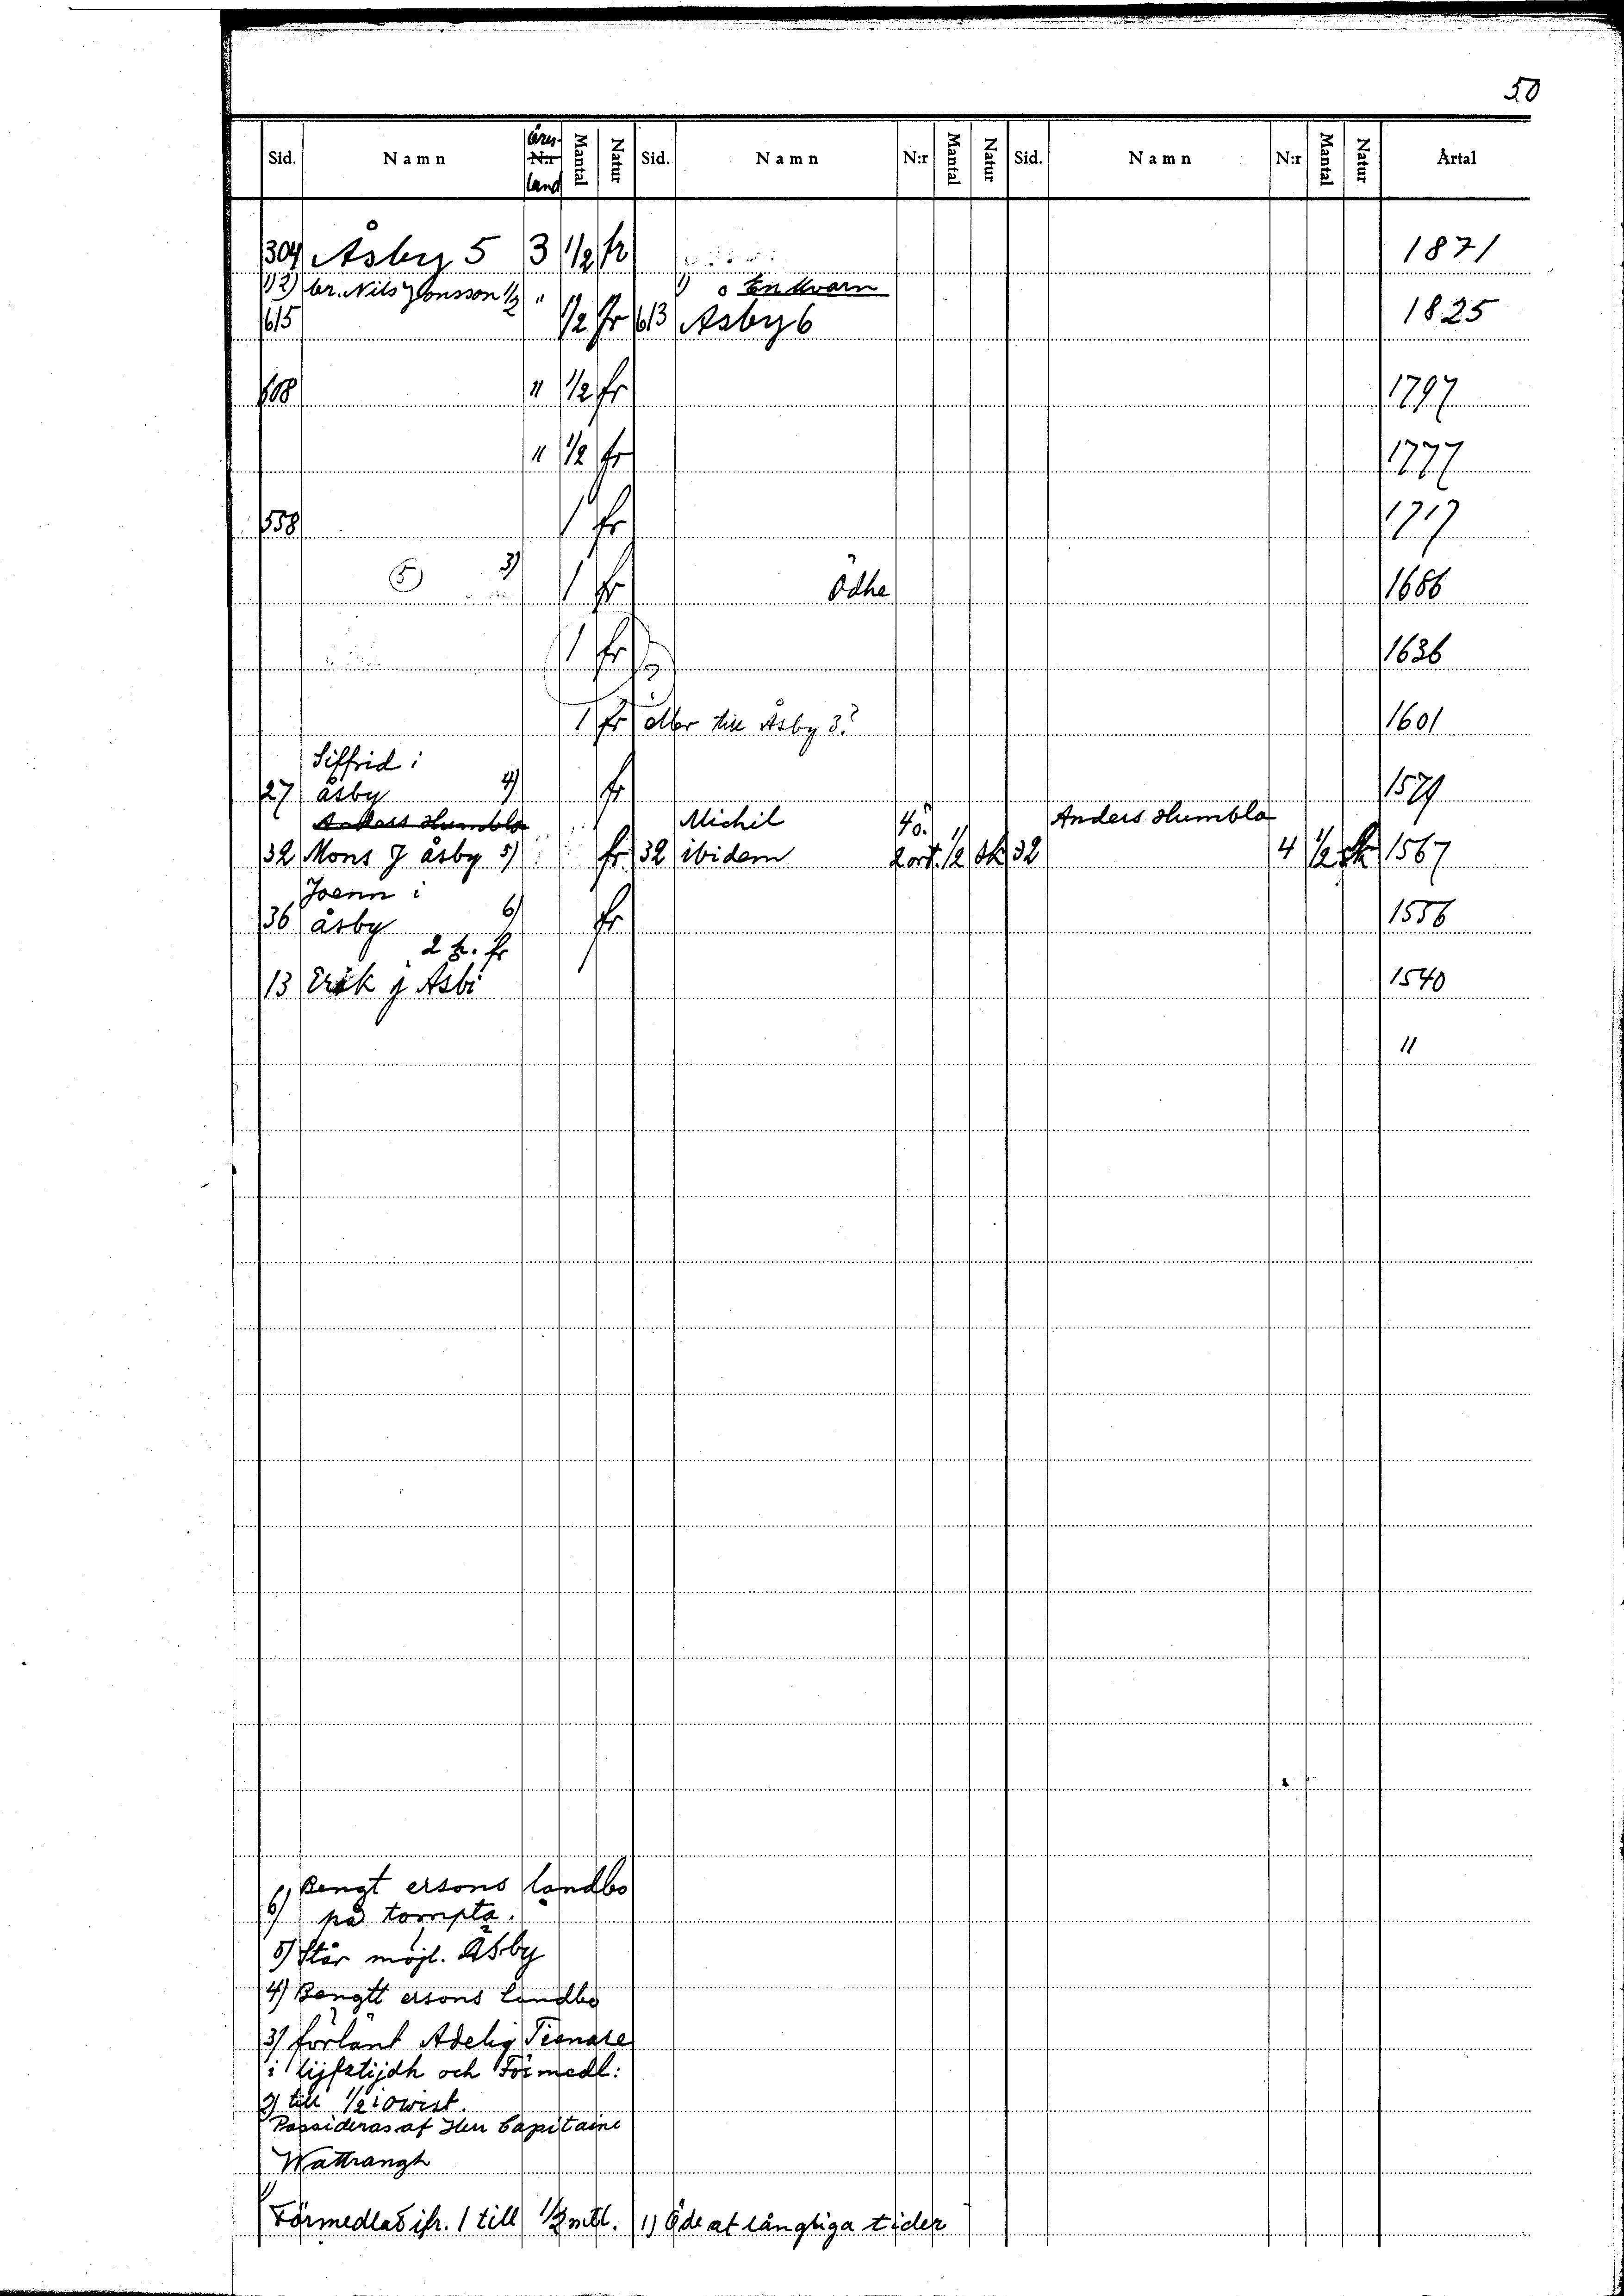 50
Sid. Namn öres- N:r land Mantal Natur Sid. Namn N:r Mantal Natur Sid. Namn N:r Mantal Natur Årtal
304 Åsby 5 3 1/2 fr 1871
1) 2) br. Nils Jonsson 1/2 " 1) o En kvarn
615 1/2 fr 613 Åsby 6 1825
608 " 1/2 fr 1797
" 1/2 fr 1777
558 1 fr 1717
5 3) 1 fr Ödhe 1686
1 fr 1636
1 fr eller till Åsby 3? 1601
Siffrid i
27 åsby 4) fr 1579
Anders Humbla Michil 4ö. Anders Humbla
32 Mons J åsby 5) fr 32 ibidem 2 ort. 1/2 sk 32 4 1/2 sk 1567
Joenn i
36 åsby 6) fr 1556
2 fr. fr
13 Erik j Asbi 1540
"
6) Bengt ersons landbo
på tompta.
5) Står möjl. Äsby
4) Bengtt ersons landbo
3) förlänt Adelig Tienare
i lijfztijdh och Förmedl:
2) till 1/2 i owist.
Possideras af Herr Capitaine
Wattrangh
1)
Förmedlat ifr. 1 till 1/2 mtl. 1) Öde af långliga tider